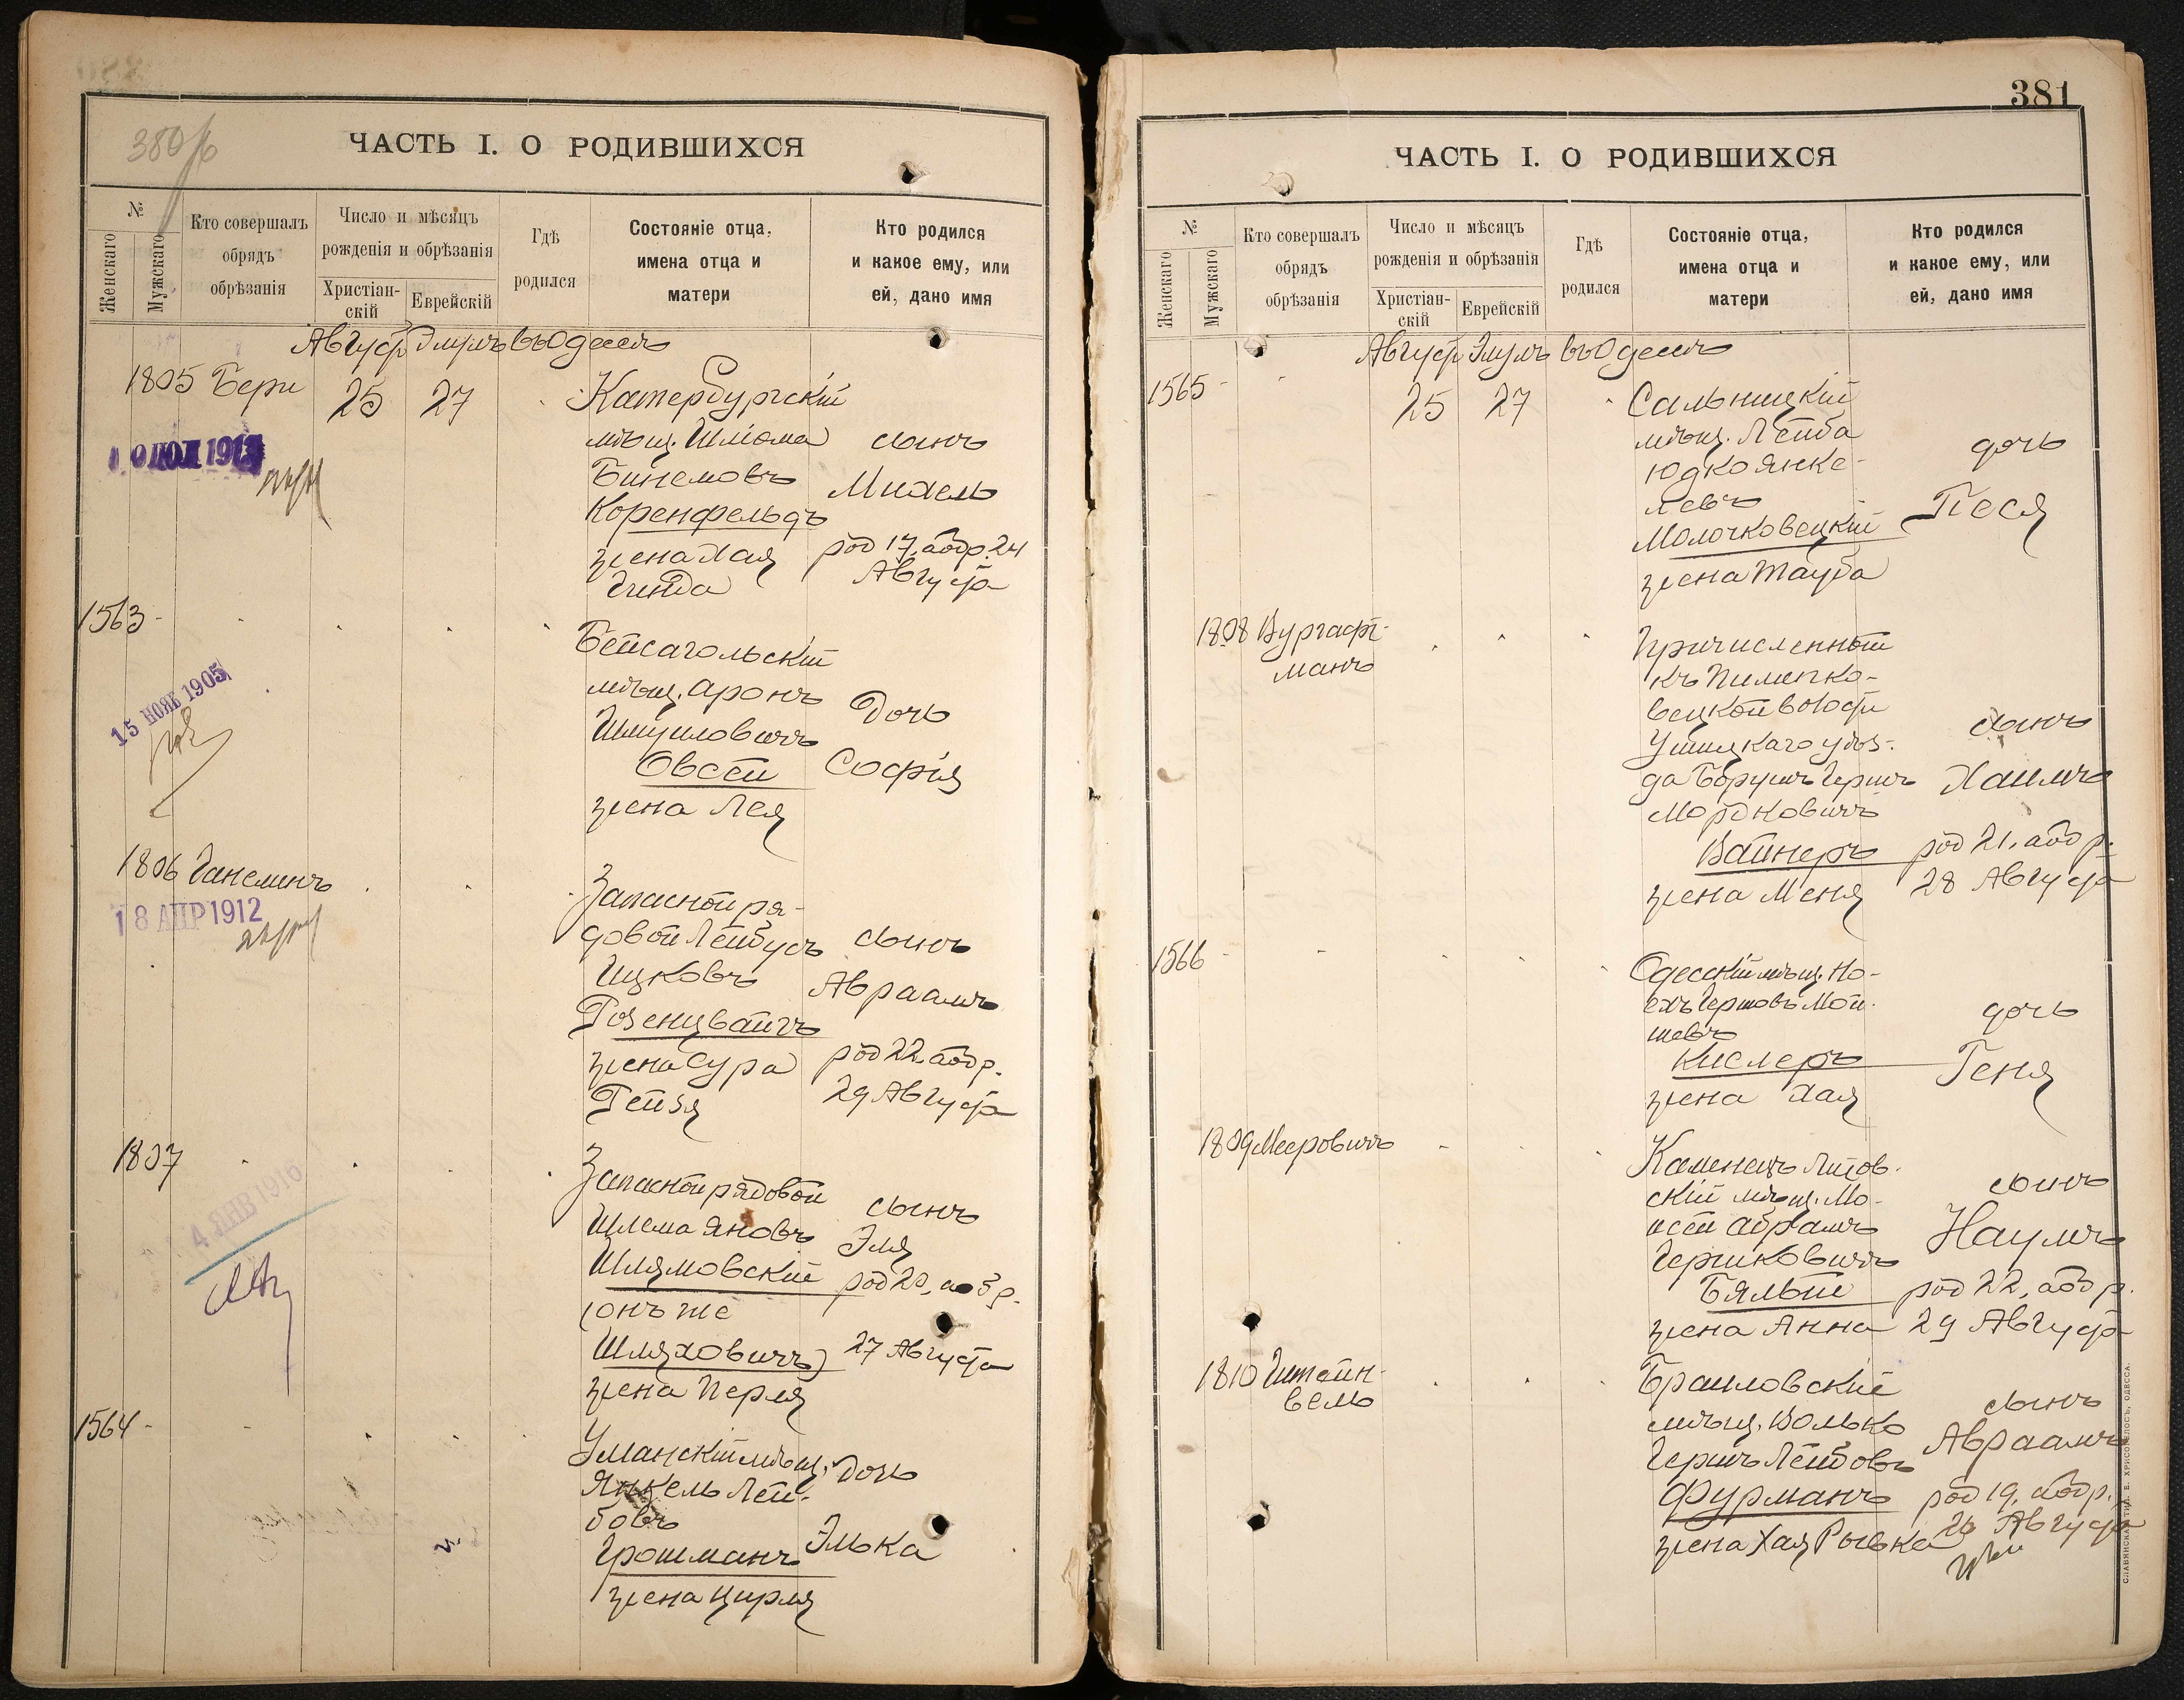 380об
ЧАСТЬ I. О РОДИВШИХСЯ
№
Женскаго
Мужскаго
Кто совершалъ
обрядъ
обрѣзанія
Число и мѣсяцъ
рожденія и обрѣзанія
Христіан-
скій
Еврейскій
Гдѣ
родился
Состояніе отца,
имена отца и
матери
Кто родился
и какое ему, или
ей, дано имя
Августъ Элулъ въ Одессѣ
1805 Бери 25 27
Катербургскій
мѣщ. Шлiома
Бинемовъ
Коренфельдъ
жена Хая
Гинда
сынъ
Михель
род 17, а обр. 24
Августа
10 ИЮЛ 1913
1563
Бейсагольскій
мѣщ. Аронъ
Шмуиловичъ
Овсей
жена Лея
Дочь
Софія
15 НОЯБ 1905
1806 Ганелинъ
Запасной ря-
довой Лейбусъ
Ицковъ
Розенцвайгъ
жена Сура
Рейзя
сынъ
Авраамъ
род 22, а обр.
29 Августа
18 АПР 1912
1807
Запасной рядовой
Шлема Яновъ
Шлямовскій
(онъ же
Шляховичъ)
жена Перля
сынъ
Эля
род 20, а обр.
27 Августа
4 ЯНВ 1916
1564
Уманскій мѣщ.
Янкель Лей-
бовъ
Грошманъ
жена Цирля
Дочь
Элька
381
ЧАСТЬ I. О РОДИВШИХСЯ
№
Женскаго
Мужскаго
Кто совершалъ
обрядъ
обрѣзанія
Число и мѣсяцъ
рожденія и обрѣзанія
Христіан-
скій
Еврейскій
Гдѣ
родился
Состояніе отца,
имена отца и
матери
Кто родился
и какое ему, или
ей, дано имя
Августъ Элулъ въ Одессѣ
1565 25 27
Сальницкій
мѣщ. Лейба
Юдко Янке-
левъ
Молочковецкій
жена Тауба
дочь
Песя
1808 Вургафт-
манъ
Причисленный
къ Пилипко-
вецкой волости
Ушицкаго уѣз-
да Борухъ Гершъ
Мордковичъ
Вайнеръ
жена Меня
сынъ
Хаимъ
род 21, а обр.
28 Августа
1566
Одесскій мѣщ. Но-
ехъ Гершовъ Мой-
шевъ
Кислеръ
жена Хая
дочь
Геня
1809 Мееровичъ
Каменецъ Литов-
скій мѣщ. Мо-
исей Абрамъ
Гершковичъ
Бялый
жена Анна
сынъ
Наумъ
род 22, а обр.
29 Августа
1810 Гитейн-
вель
Браиловскій
мѣщ. Волько
Гершъ Лейбовъ
Фурманъ
жена Хая Рывка
сынъ
Авраамъ
род 19, а обр.
26 Августа
СЛАВЯНСКАЯ ТИП. Е. ХРИСОГЕЛОСЪ, ОДЕССА.